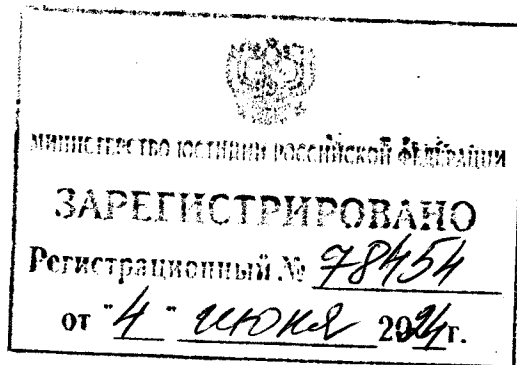 МИНИСТЕРСТВО ЮСТИЦИИ РОССИЙСКОЙ ФЕДЕРАЦИИ
ЗАРЕГИСТРИРОВАНО
Регистрационный № 78454
от "4" июня 2024г.